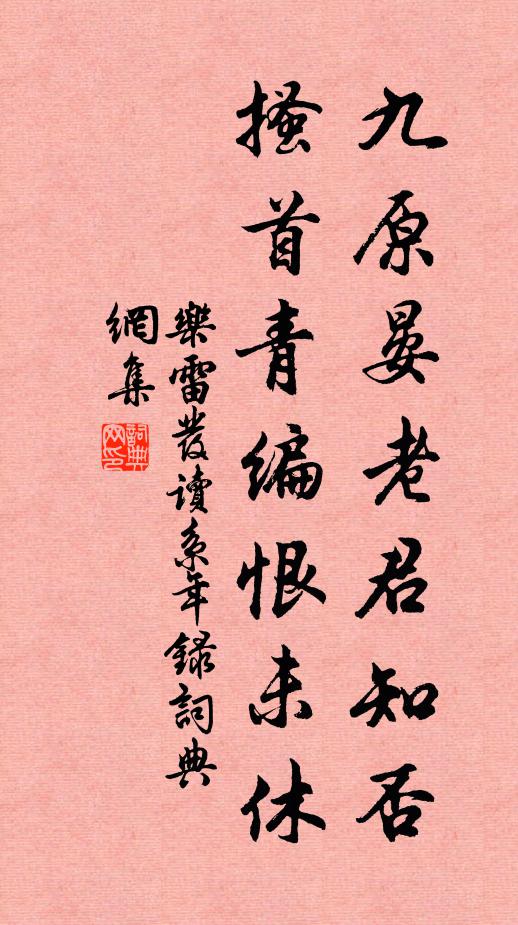 九原晏老君知否
搔首青编恨未休
樂雷发讀系年録詞典
網集
詞典
网印